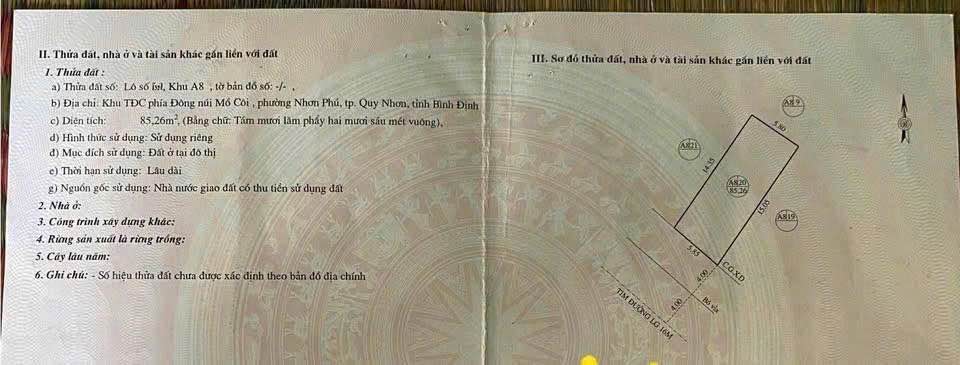 II. Thửa đất, nhà ở và tài sản khác gắn liền với đất
1. Thửa đất :
a) Thửa đất số: Lô số , Khu A8 , tờ bản đồ số: -/- ,
b) Địa chỉ: Khu TĐC phía Đông núi Mồ Côi , phường Nhơn Phú, tp. Quy Nhơn, tỉnh Bình Định
c) Diện tích: 85,26m², (Bằng chữ: Tám mươi lăm phẩy hai mươi sáu mét vuông),
d) Hình thức sử dụng: Sử dụng riêng
đ) Mục đích sử dụng: Đất ở tại đô thị
e) Thời hạn sử dụng: Lâu dài
g) Nguồn gốc sử dụng: Nhà nước giao đất có thu tiền sử dụng đất
2. Nhà ở:
3. Công trình xây dựng khác:
4. Rừng sản xuất là rừng trồng:
5. Cây lâu năm:
6. Ghi chú: - Số hiệu thửa đất chưa được xác định theo bản đồ địa chính
III. Sơ đồ thửa đất, nhà ở và tài sản khác gắn liền với đất
5.80
A821
14.35
A820
85,26
15.05
A819
5.85
C.G.X.D
4.00
Bó vỉa
4.00
TIM ĐƯỜNG LG 16M